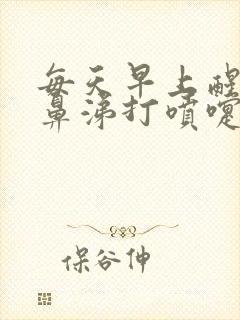 每天早上醒
鼻涕打噴嚏
保谷伸